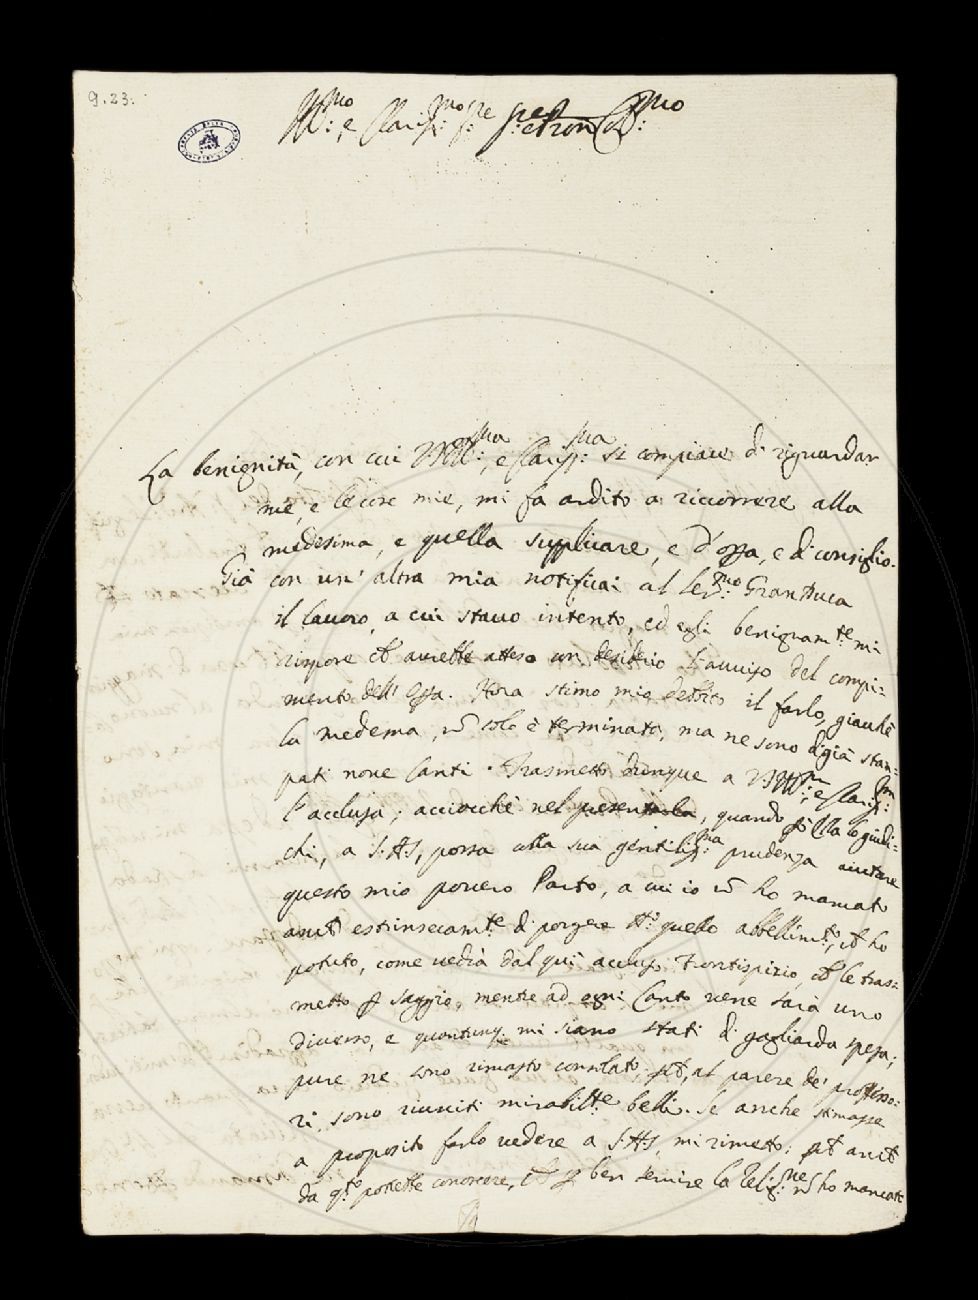 9.23.
Ill.mo, e Clariss.mo Sig.re Sig.re e Pron Col.mo
La benignità, con cui V.S. Ill.ma, e Clariss.ma si compiace di riguardar
me, e le cose mie, mi fa ardito a ricorrere alla
medesima, e quella supplicare, e d'opra, e di consiglio.
Già con un' altra mia notificai al Ser.mo GranDuca
il lavoro, a cui stavo intento, ed egli benignam.te mi
rispose ch' avrebbe atteso con desiderio l'avviso del compi=
mento dell' Opra. Hora stimo mio debito il farlo, giacchè
la medema, nō solo è terminata, ma ne sono digià stam=
pati nove Canti. Trasmetto dunque a V.S. Ill.ma, e Clariss.ma
l'acclusa; acciocchè nel presentarla, quando p̄ò Ella lo giudi=
chi, a S.A.S, possa colla sua gentiliss.ma prudenza aiutare
questo mio povero Parto, a cui io nō ho mancato
anch' estrinsecam.te di porgere tt.o quello abbellim.to, ch' ho
potuto, come vedrà dal quì accluso Frontispizio, ch' le tras=
metto p̄ saggio, mentre ad ogni Canto vene sarà uno
diverso, e quantunq. mi siano stati di gagliarda spesa;
pure ne sono rimasto consolato, p̄ch', al parere de' professo=
ri, sono riusciti mirabilm.te belli. Se anche stimasse
a proposito farlo vedere a S.A.S, mi rimetto; p̄ch' anch'
da q.to potrebbe conoscere, ch' p̄ ben servire la Relig.ne nō ho mancato